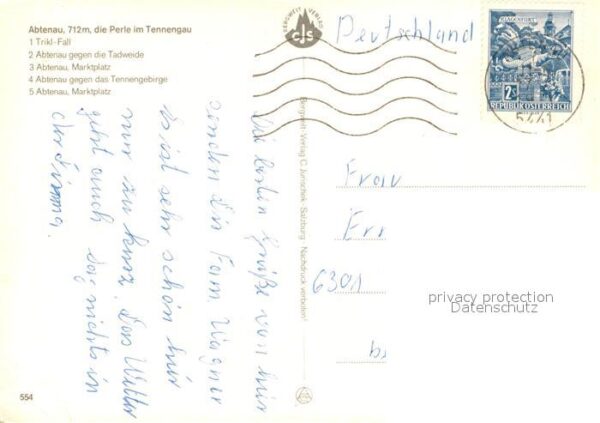 Abtenau, 712m, die Perle im Tennengau
1 Trikl-Fall
2 Abtenau gegen die Tadweide
3 Abtenau, Marktplatz
4 Abtenau gegen das Tennengebirge
5 Abtenau, Marktplatz
BERGWELT VERLAG
cJs
Deutschland
KLAGENFURT
2S
REPUBLIK ÖSTERREICH
5441
Die besten Grüße von hier
senden Dir Fam. Wagner
es ist sehr schön hier
nur zu kurz. Das Wetter
jetzt auch das nichts in
der Firma.
Bergwelt-Verlag C. Jurischek, Salzburg · Nachdruck verboten!
Frau
6301
privacy protection
Datenschutz
554